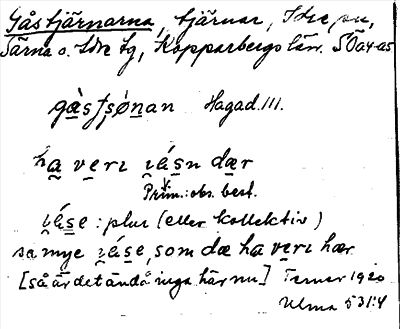 Gåstjärnarna, tjärnar, Idre sn,
Särna o. Idre tg, Kopparbergs län. SÖa4-a5
Hagad. III.
ha veri dær
Prim.: obs. best.
: plur (eller kollektiv)
sa mye , som dæ ha veri hær
[så är det ändå inga här nu] 1920
Ulma 531:4